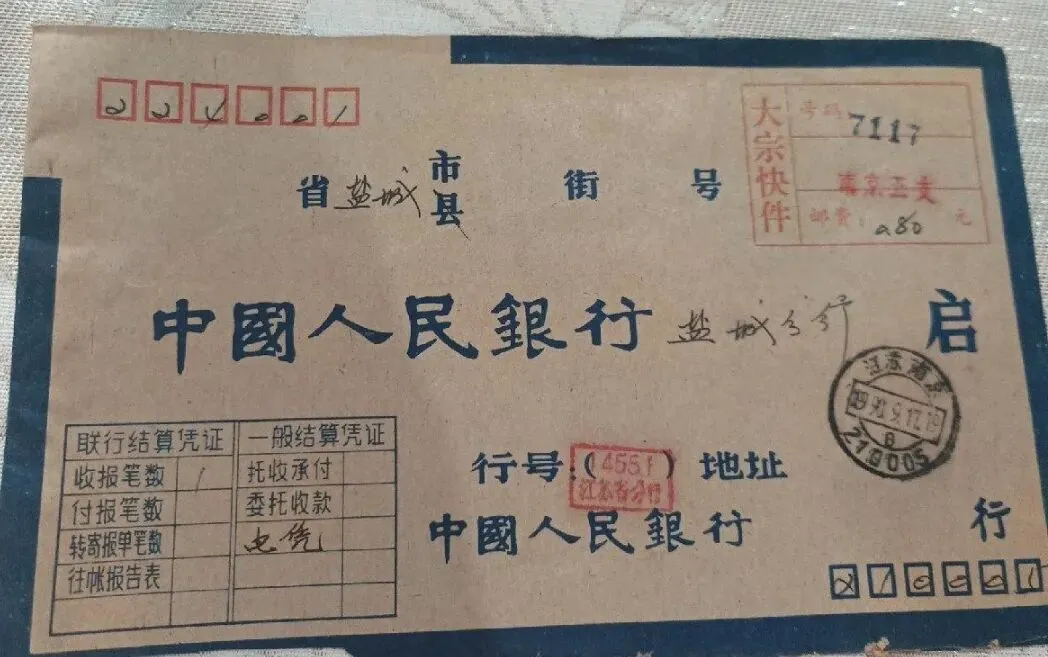 224001
大宗快件
号码 7117
南京五支
邮费：0.80 元
省 盐城 市县 街 号
中國人民銀行 盐城分行 启
江苏南京
1990.9.17.19
B
210005
联行结算凭证 一般结算凭证
收报笔数 1 托收承付
付报笔数 委托收款
转寄报单笔数 电凭
往帐报告表
行号：（14551） 地址
江苏省分行
中國人民銀行 行
210001